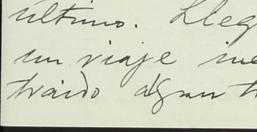 último. Lleg
un viaje
traido algun t